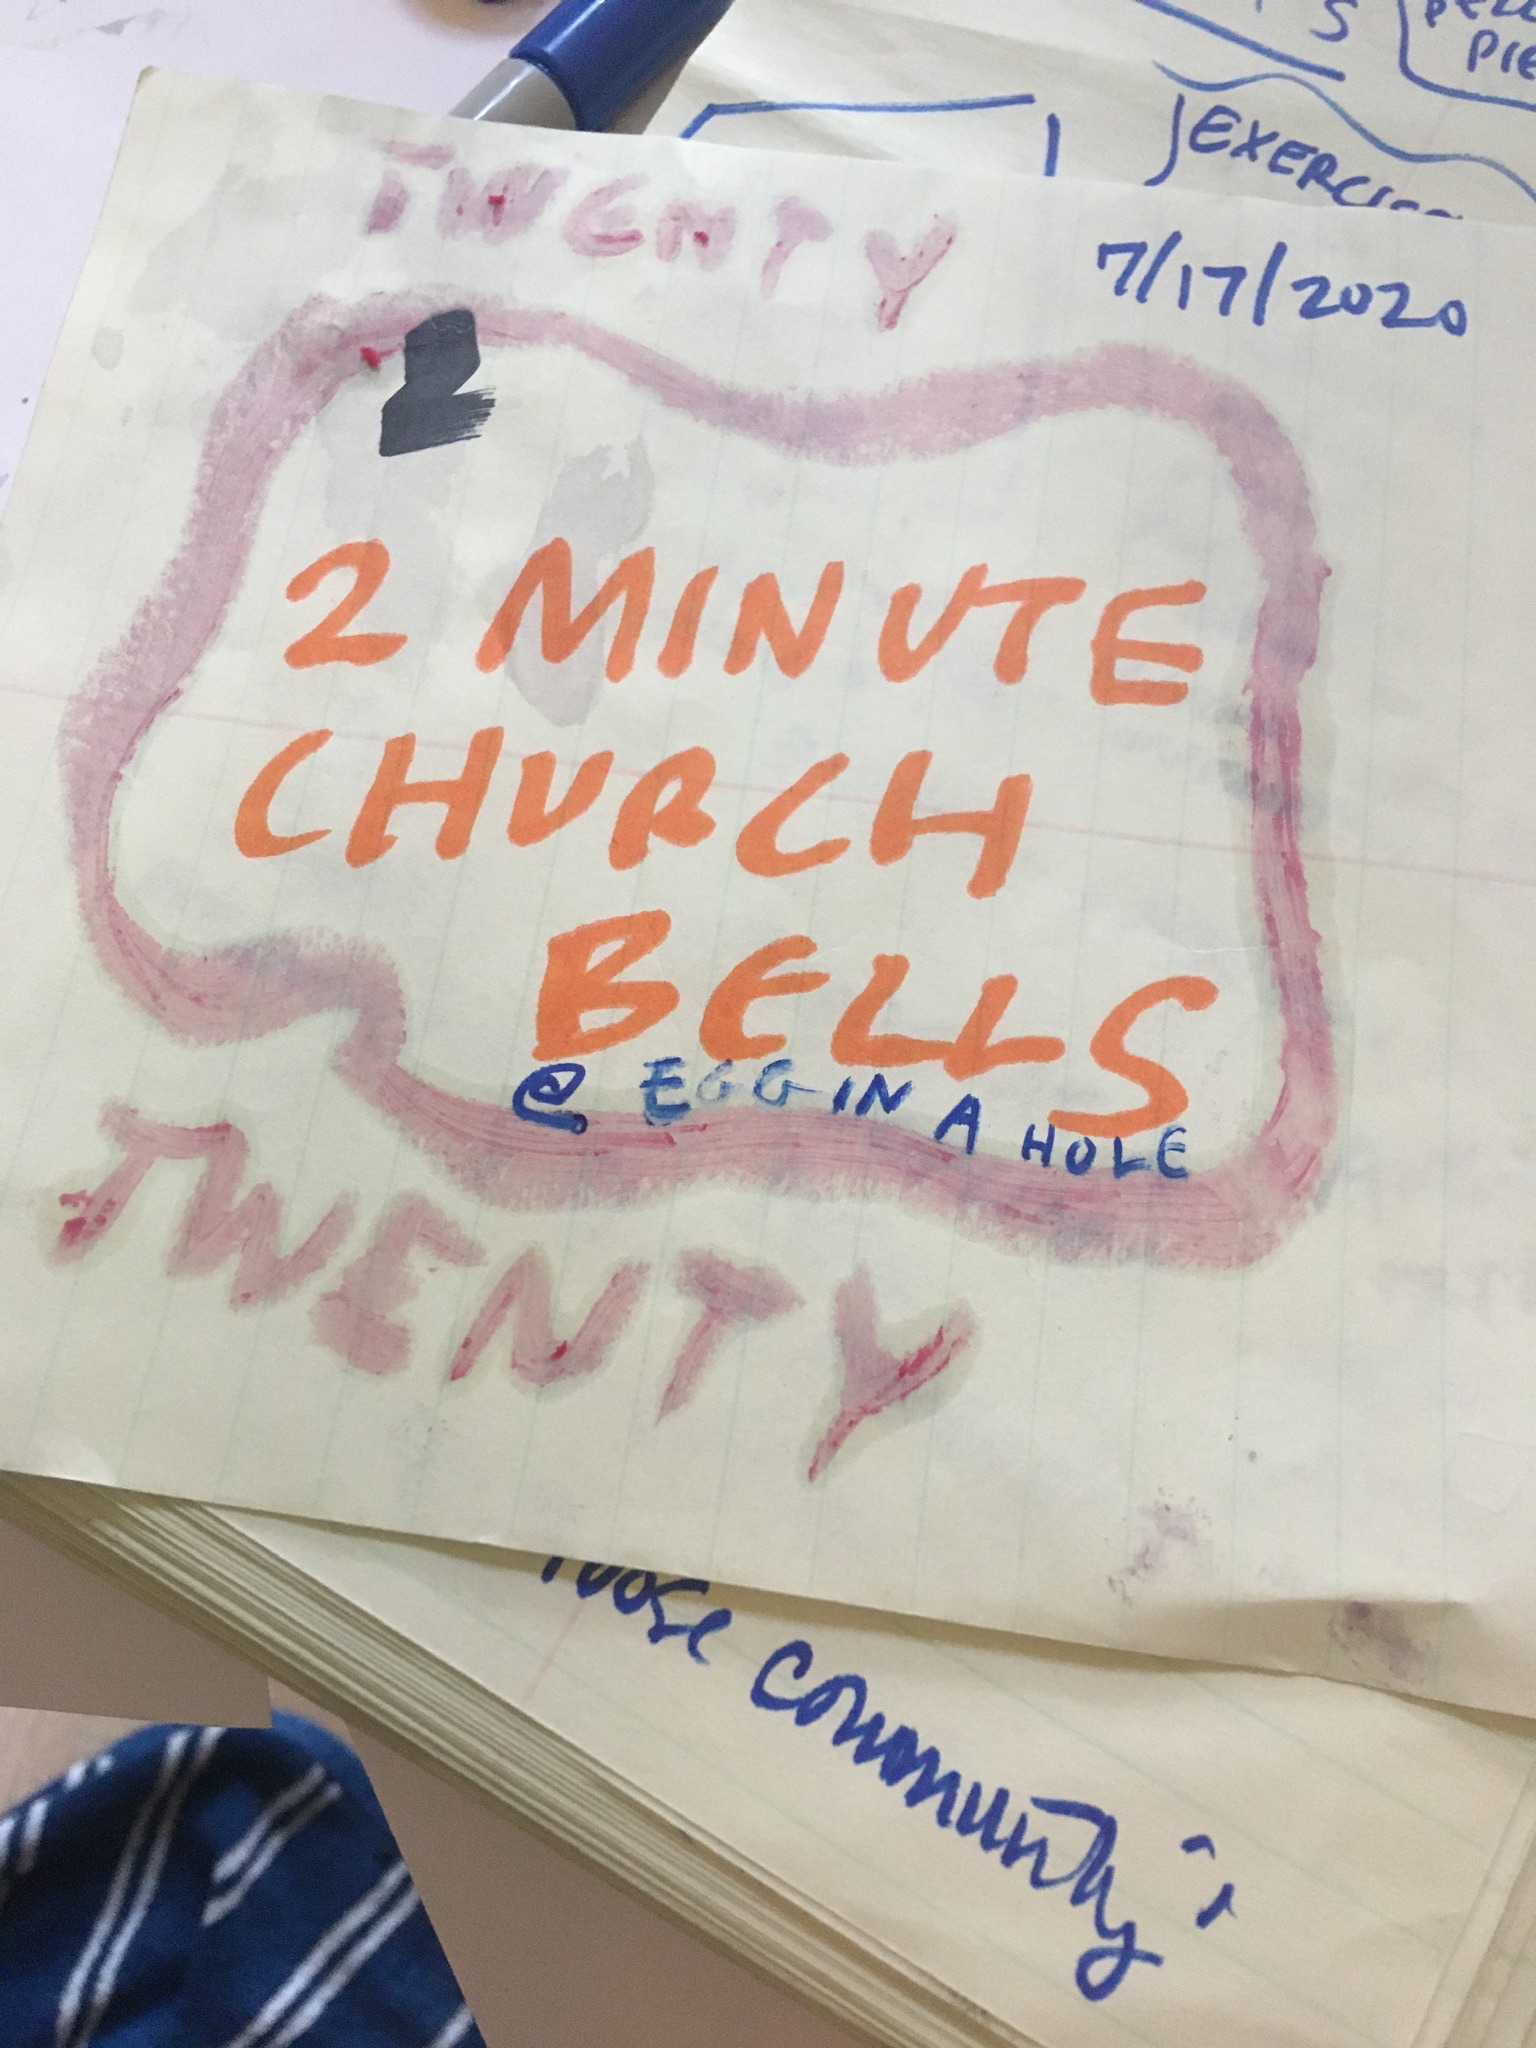 PIE
EXERCI
TWENTY
7/17/2020
2 MINUTE
CHURCH
BELLS
@ EGG IN A HOLE
TWENTY
community